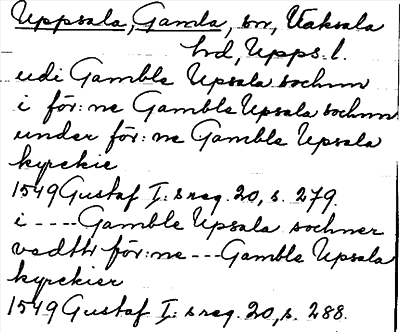 Uppsala, Gamla, sn, Vaksala
hd, Upps. l.
udi Gamble Upsala sochnn
i för:ne Gamble Upsala sochnn
under för:ne Gamble Upsala
kyrckie
1549 Gustaf I:s reg. 20, s. 279.
i ---- Gamble Upsala sochner
vedth för:ne --- Gamble Upsala
kyrckier
1549 Gustaf I:s reg. 20, s. 288.